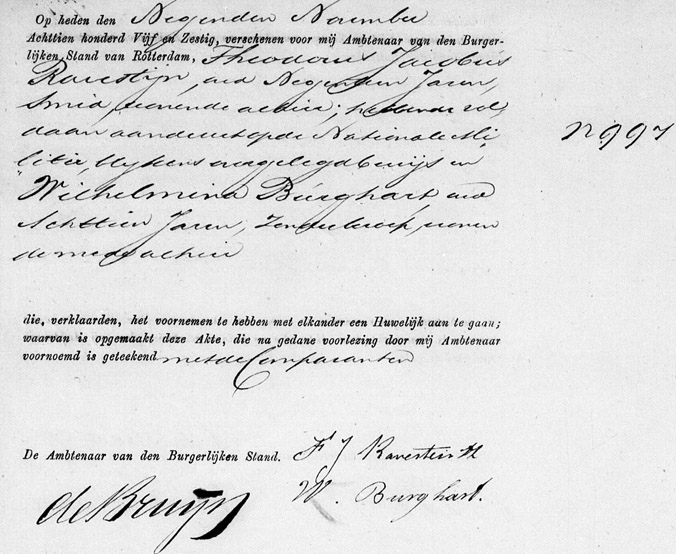 Op heden den Negenden November
Achttien honderd Vijf en Zestig, verschenen voor mij Ambtenaar van den Burger-
lijken Stand van Rotterdam, Theodorus Jacobus
Ravestijn, oud Negentien Jaren,
Smid, wonende alhier; hebbende vol,
daan aan de wet op de Nationale Mi,
litie, blijkens overgelegd bewijs en
Wilhelmina Burghart, oud
Achttien Jaren, zonder beroep, wonen
de mede alhier
N 997
die, verklaarden, het voornemen te hebben met elkander een Huwelijk aan te gaan;
waarvan is opgemaakt deze Akte, die na gedane voorlezing door mij Ambtenaar
voornoemd is geteekend met de Comparanten
De Ambtenaar van den Burgerlijken Stand.
J Ravesteijn
W. Burghart.
de Bruyn